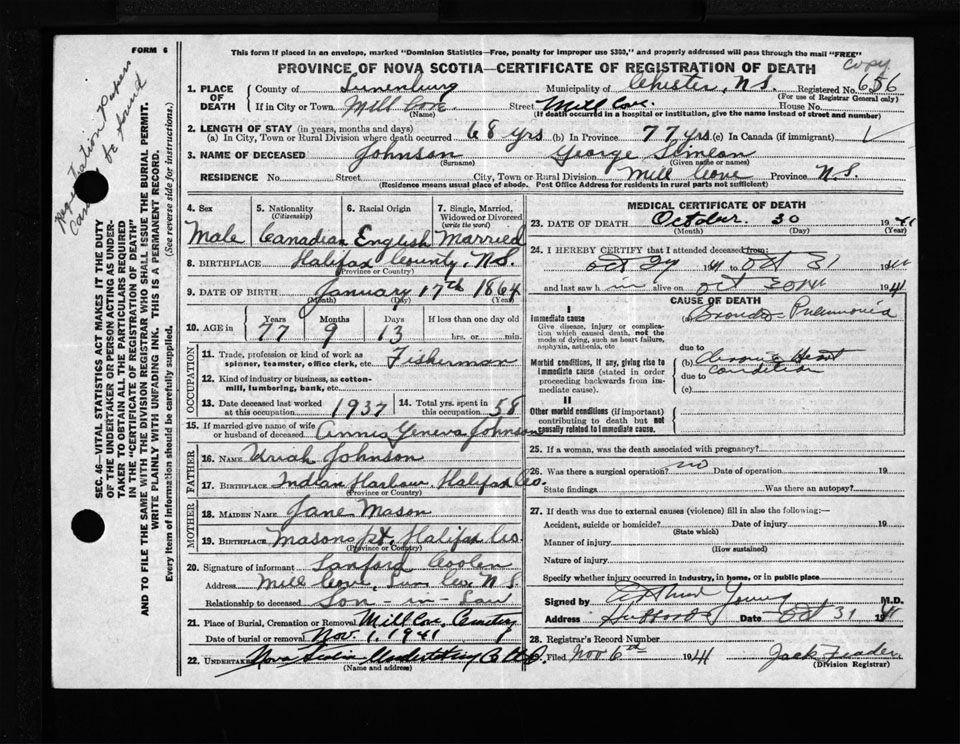 FORM 6
This form if placed in an envelope, marked "Dominion Statistics—Free, penalty for improper use $300," and properly addressed will pass through the mail "FREE"
PROVINCE OF NOVA SCOTIA—CERTIFICATE OF REGISTRATION OF DEATH
Copy
1. PLACE OF DEATH
County of Lunenburg Municipality of Chester, N.S. Registered No. 656
(For use of Registrar General only)
If in City or Town Mill Cove Street Mill Cove. House No.
(Name) (If death occurred in a hospital or institution, give the name instead of street and number)
2. LENGTH OF STAY (in years, months and days)
(a) In City, Town or Rural Division where death occurred 68 yrs (b) In Province 77 yrs (c) In Canada (if immigrant)
3. NAME OF DECEASED Johnson George Simeon
(Surname) (Given name or names)
RESIDENCE No. Street City, Town or Rural Division Mill Cove Province N.S.
(Residence means usual place of abode. Post Office Address for residents in rural parts not sufficient)
4. Sex 5. Nationality (Citizenship) 6. Racial Origin 7. Single, Married, Widowed or Divorced (write the word)
Male Canadian English Married
8. BIRTHPLACE Halifax County, N.S.
(Province or Country)
9. DATE OF BIRTH January 17th 1864
(Month) (Day) (Year)
10. AGE in Years Months Days If less than one day old
77 9 13 hrs. or min.
OCCUPATION
11. Trade, profession or kind of work as spinner, teamster, office clerk, etc. Fisherman
12. Kind of industry or business, as cotton-mill, lumbering, bank, etc.
13. Date deceased last worked at this occupation 1937 14. Total yrs. spent in this occupation 58
15. If married give name of wife or husband of deceased Annie Geneva Johnson
FATHER
16. NAME Uriah Johnson
17. BIRTHPLACE Indian Harbour, Halifax Co.
(Province or Country)
MOTHER
18. MAIDEN NAME Jane Mason
19. BIRTHPLACE Masons Pt. Halifax Co.
(Province or Country)
20. Signature of informant Sanford Coolen
Address Mill Cove, Lun Co. N.S.
Relationship to deceased Son-in-Law
21. Place of Burial, Cremation or Removal Mill Cove, Cemetery
Date of burial or removal Nov. 1, 1941
22. UNDERTAKER Nova Scotia Undertaking Co. Ltd.
(Name and address)
MEDICAL CERTIFICATE OF DEATH
23. DATE OF DEATH October 30 1941
(Month) (Day) (Year)
24. I HEREBY CERTIFY that I attended deceased from:
Oct 29 1941 to Oct 31 1941
and last saw h im alive on Oct 30th 1941
CAUSE OF DEATH
I
Immediate cause
Give disease, injury or complication which caused death, not the mode of dying, such as heart failure, asphyxia, asthenia, etc
(a) Broncho-Pneumonia
due to
Morbid conditions, if any, giving rise to immediate cause (stated in order proceeding backwards from immediate cause).
(b) Chronic Heart
due to condition
(c)
II
Other morbid conditions (if important) contributing to death but not causally related to immediate cause.
25. If a woman, was the death associated with pregnancy?
26. Was there a surgical operation? no Date of operation 19
State findings Was there an autopsy?
27. If death was due to external causes (violence) fill in also the following:—
Accident, suicide or homicide? Date of injury 19
(State which)
Manner of injury
(How sustained)
Nature of injury
Specify whether injury occurred in industry, in home, or in public place
Signed by Arthur Young M.D.
Address Hubbards Date Oct 31 1941
28. Registrar's Record Number
Filed Nov 6th 1941 Jack
(Division Registrar)
Registration Papers
Cannot be found
SEC. 46—VITAL STATISTICS ACT MAKES IT THE DUTY
OF THE UNDERTAKER OR PERSON ACTING AS UNDERTAKER
TO OBTAIN ALL THE PARTICULARS REQUIRED
IN THE "CERTIFICATE OF REGISTRATION OF DEATH"
AND TO FILE THE SAME WITH THE DIVISION REGISTRAR WHO SHALL ISSUE THE BURIAL PERMIT.
WRITE PLAINLY WITH UNFADING INK. THIS IS A PERMANENT RECORD.
Every item of information should be carefully supplied. (See reverse side for instructions.)